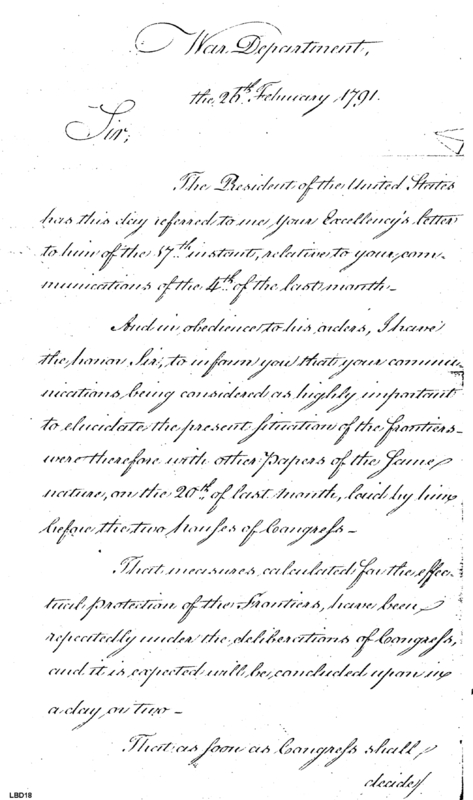 War Department,
the 26th February 1791.
Sir,
The President of the United States
has this day referred to me, your Excellency's letter
to him of the 17th instant, relative to your com-
munications of the 4th of the last month -
And in obedience to his orders, I have
the honor Sir, to inform you that your commu-
nications, being considered as highly important
to elucidate the present situation of the frontiers -
were therefore with other Papers of the same
nature, on the 20th of last month, laid by him
before the two houses of Congress -
That measures, calculated for the effec-
tual protection of the Frontiers, have been
repeatedly under the deliberations of Congress,
and it is expected will be, concluded upon in
a day, or two -
That as soon as Congress shall
decide/
LBD18